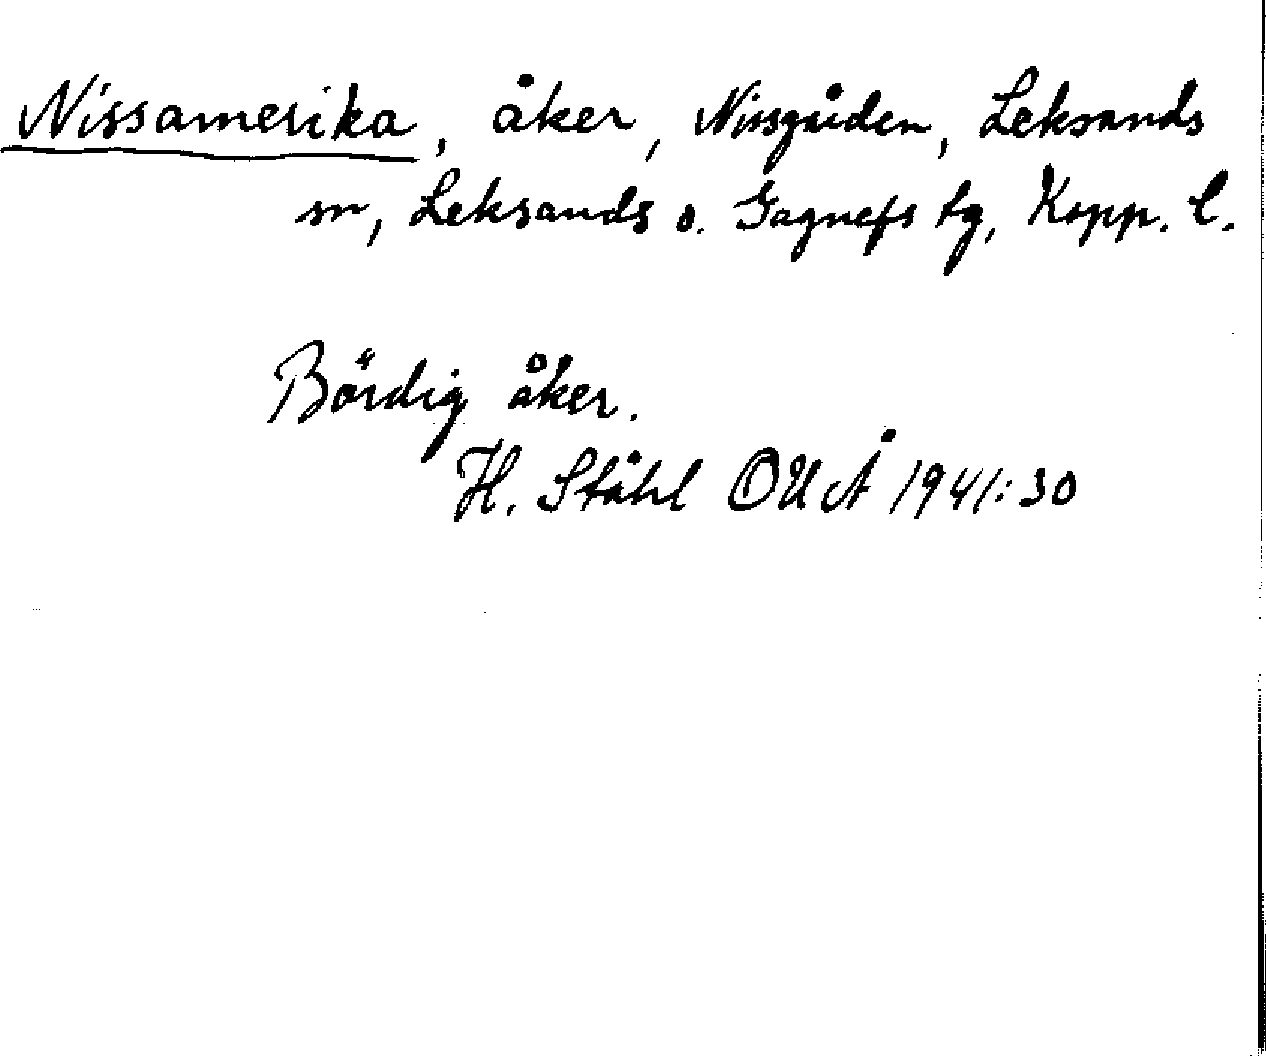 Nissamerika, åker, Nissgården, Leksands
sn, Leksands o. Gagnefs tg, Kopp. l.
Bördig åker.
H. Ståhl OUÅ 1941:30